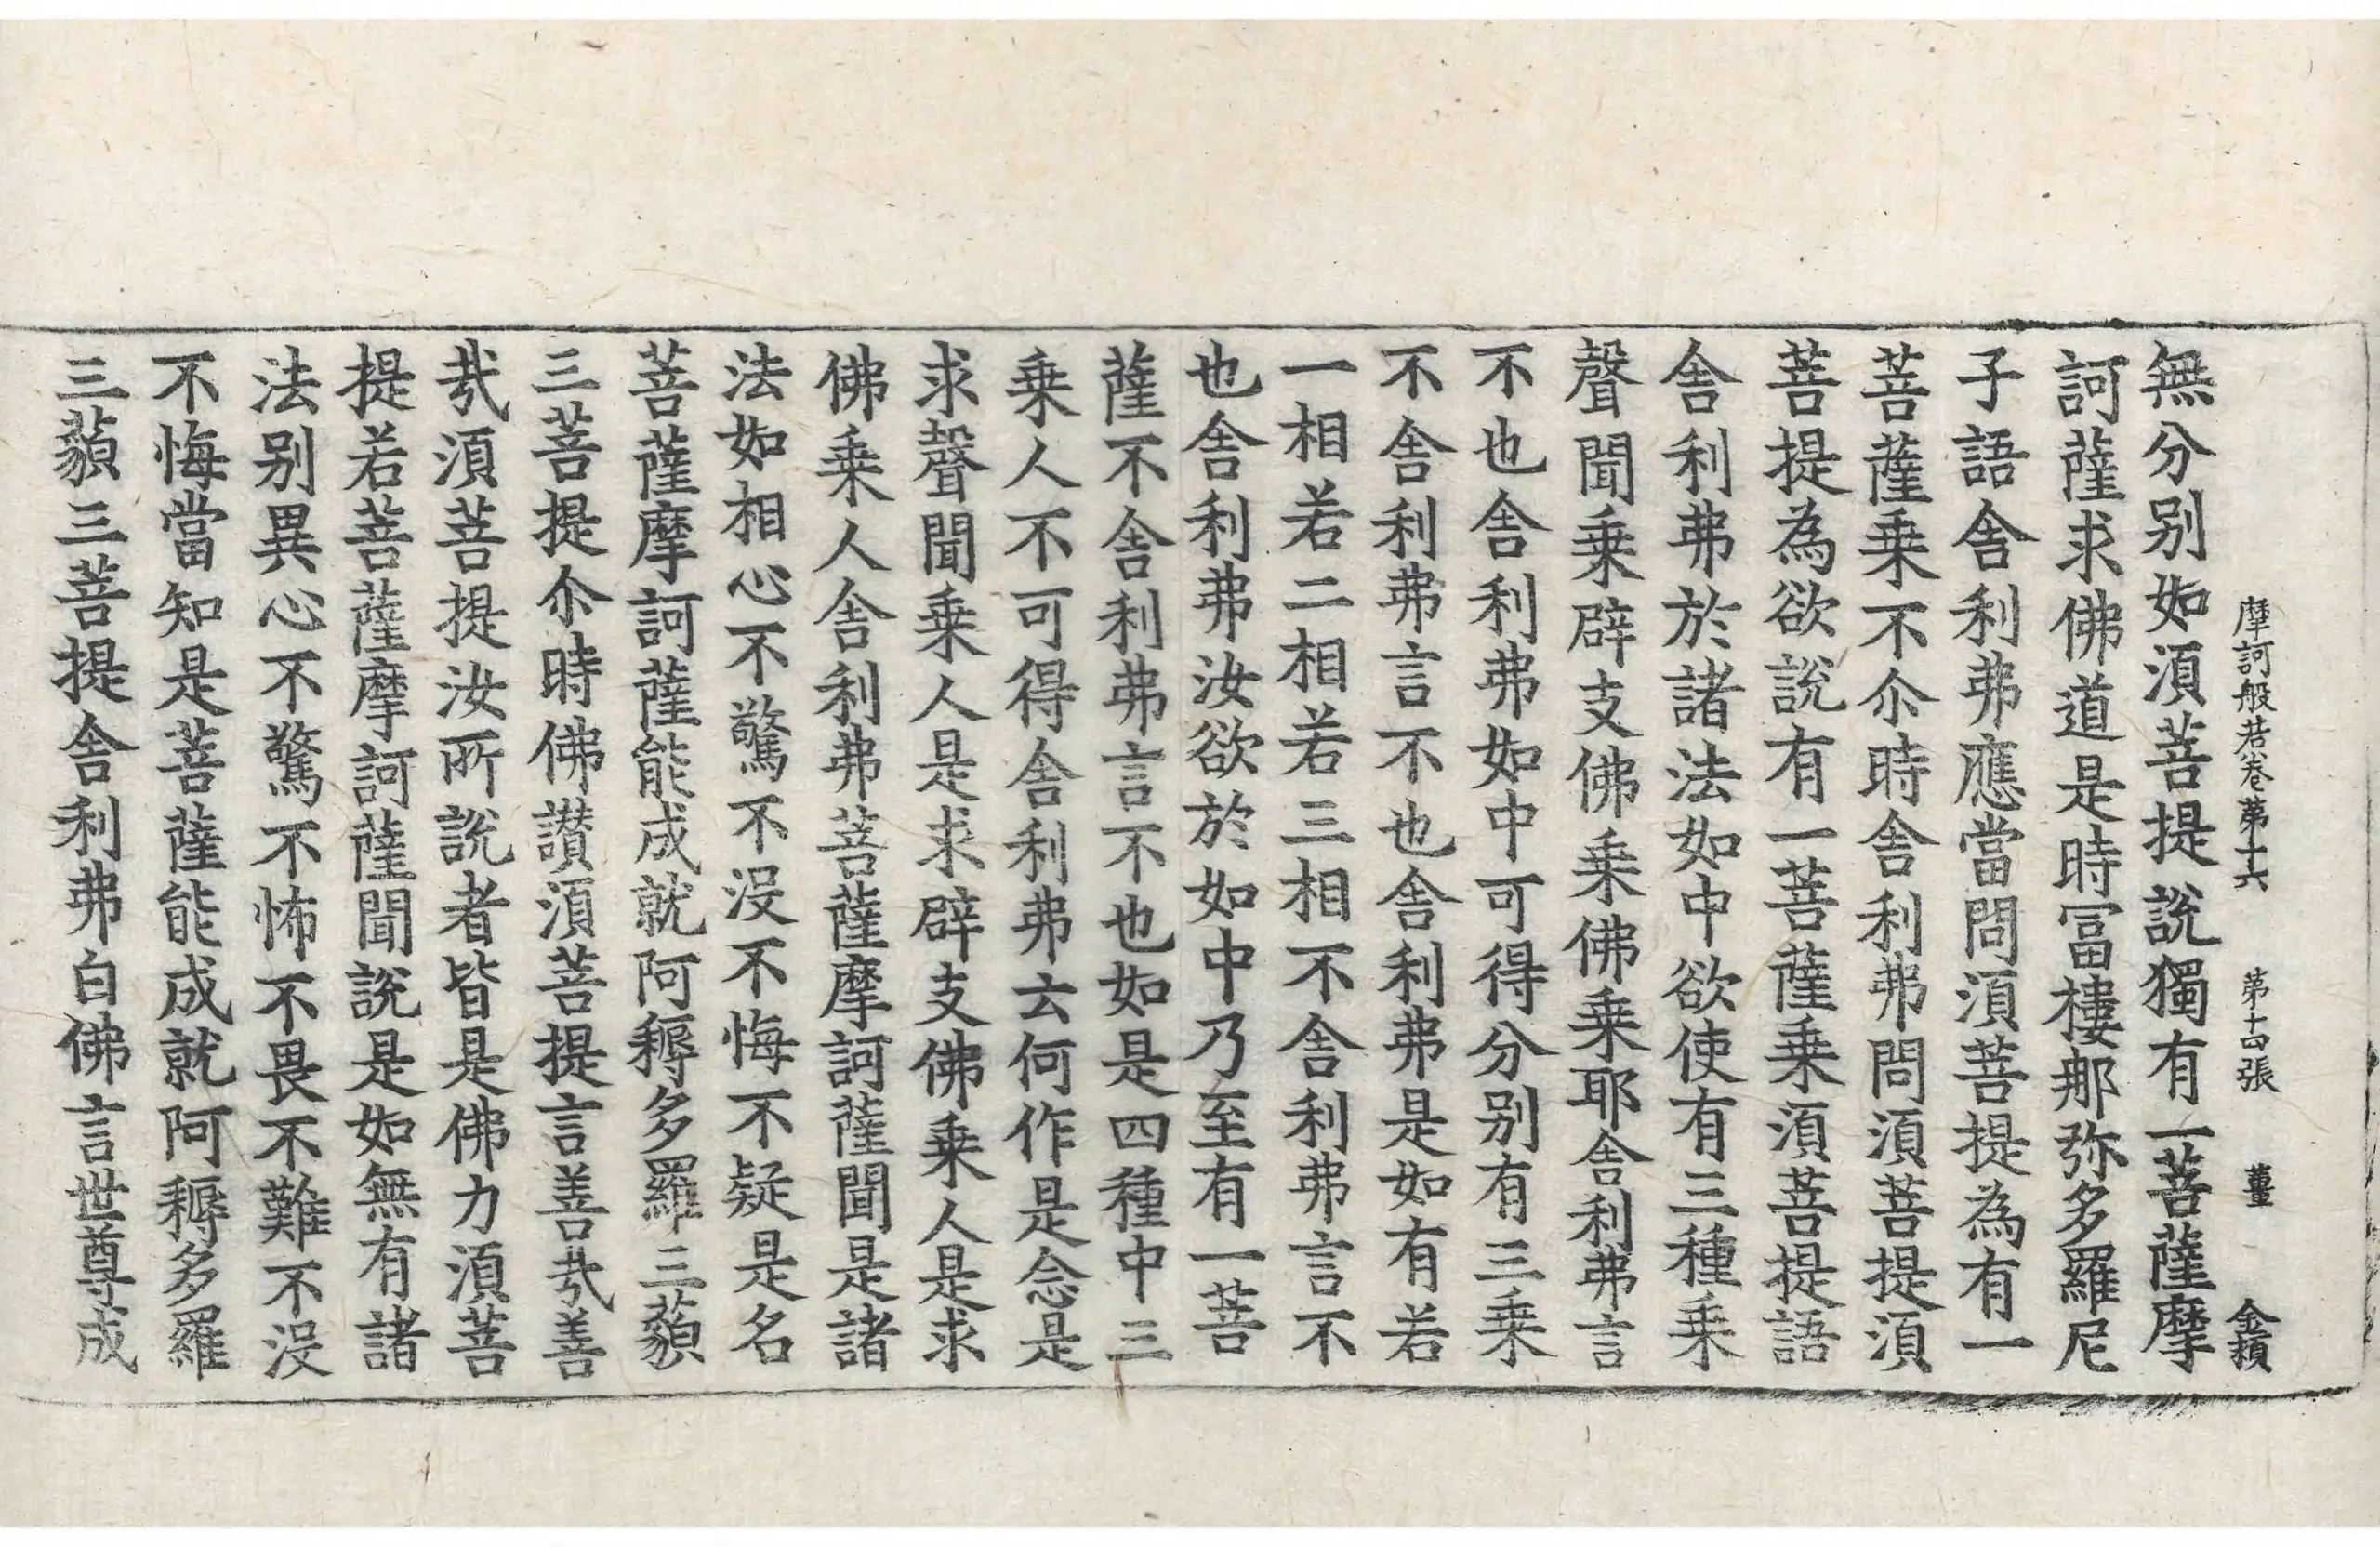 摩訶般若卷第十六 第十四張 薑 金績
無分別如須菩提說獨有一菩薩摩
訶薩求佛道是時冨樓那弥多羅尼
子語舍利弗應當問須菩提為有一
菩薩乗不尒時舍利弗問須菩提須
菩提為欲說有一菩薩乗須菩提語
舍利弗於諸法如中欲使有三種乗
聲聞乗辟支佛乗佛乗耶舍利弗言
不也舍利弗如中可得分別有三乗
不舍利弗言不也舍利弗是如有若
一相若二相若三相不舍利弗言不
也舍利弗汝欲於如中乃至有一菩
薩不舍利弗言不也如是四種中三
乗人不可得舍利弗云何作是念是
求聲聞乗人是求辟支佛乗人是求
佛乗人舍利弗菩薩摩訶薩聞是諸
法如相心不驚不沒不悔不疑是名
菩薩摩訶薩能成就阿耨多羅三藐
三菩提尒時佛讃須菩提言善㢤善
㢤須菩提汝所說者皆是佛力須菩
提若菩薩摩訶薩聞說是如無有諸
法別異心不驚不怖不畏不難不沒
不悔當知是菩薩能成就阿耨多羅
三藐三菩提舍利弗白佛言世尊成